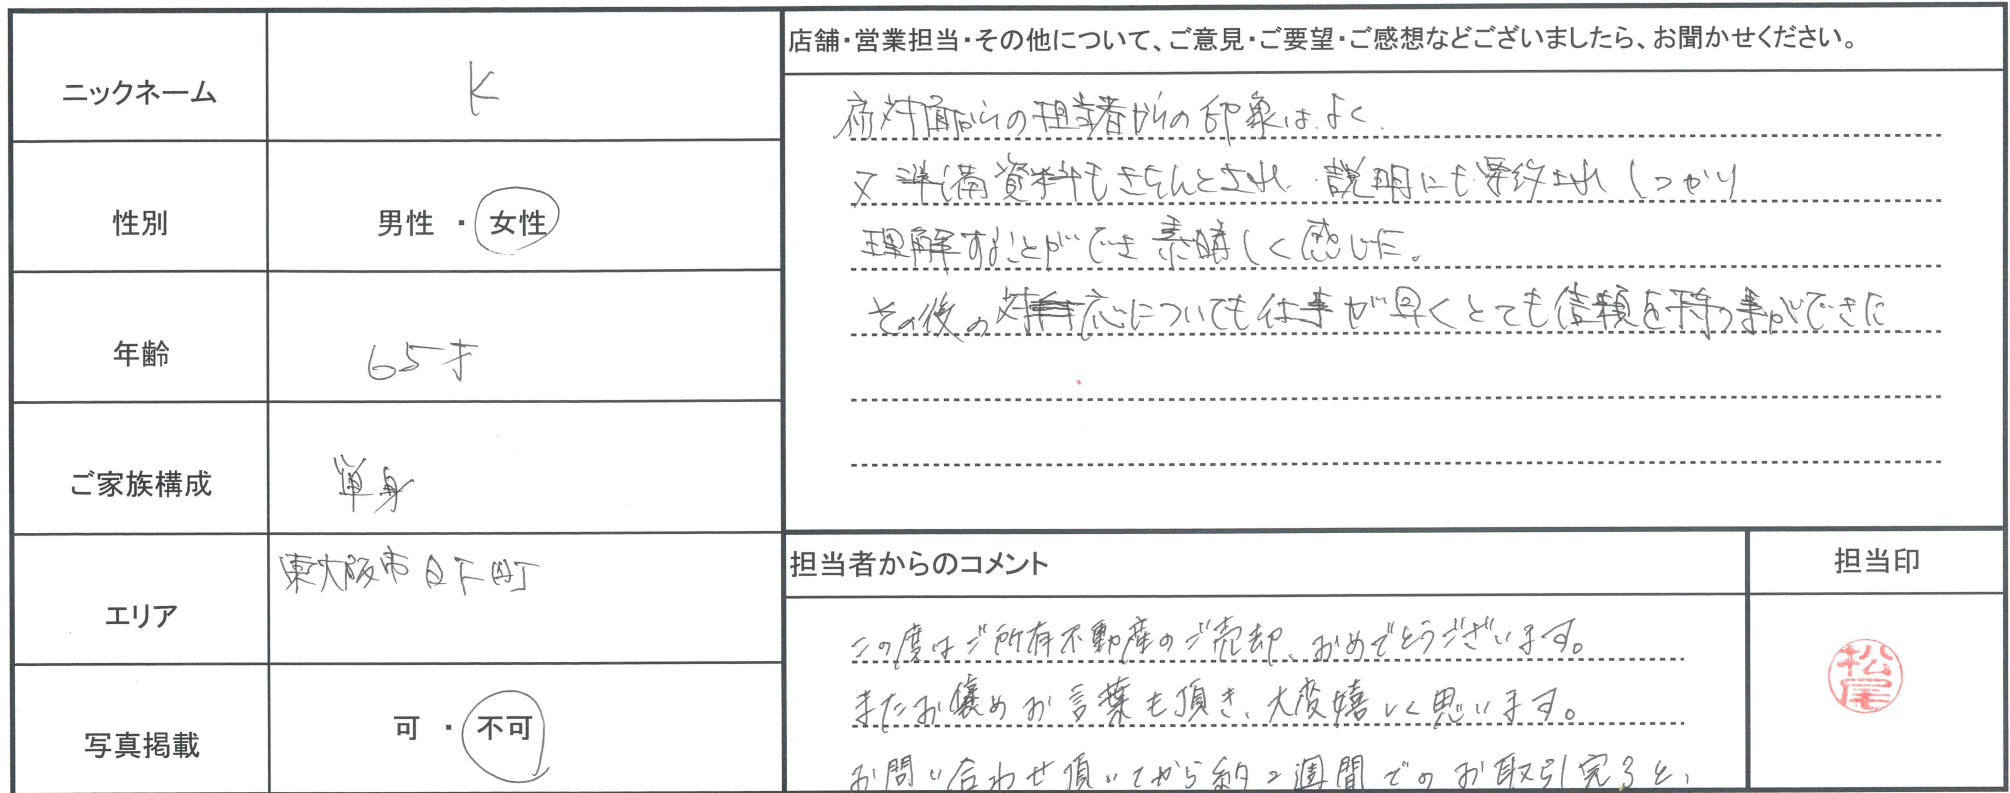 ニックネーム
K
性別
男性 ・ 女性
年齢
65才
ご家族構成
単身
エリア
東大阪市日下町
写真掲載
可 ・ 不可
店舗・営業担当・その他について、ご意見・ご要望・ご感想などございましたら、お聞かせください。
初対面からの担当者からの印象はよく、
又準備資料もきちんとされ、説明にも要約されしっかり
理解することができ素晴しく感じた。
その後の対応についても仕事が早くとても信頼を持つ事ができた
担当者からのコメント
この度はご所有不動産のご売却、おめでとうございます。
またお褒めお言葉も頂き、大変嬉しく思います。
お問い合わせ頂いてから約2週間でのお取引完了と、
担当印
松尾